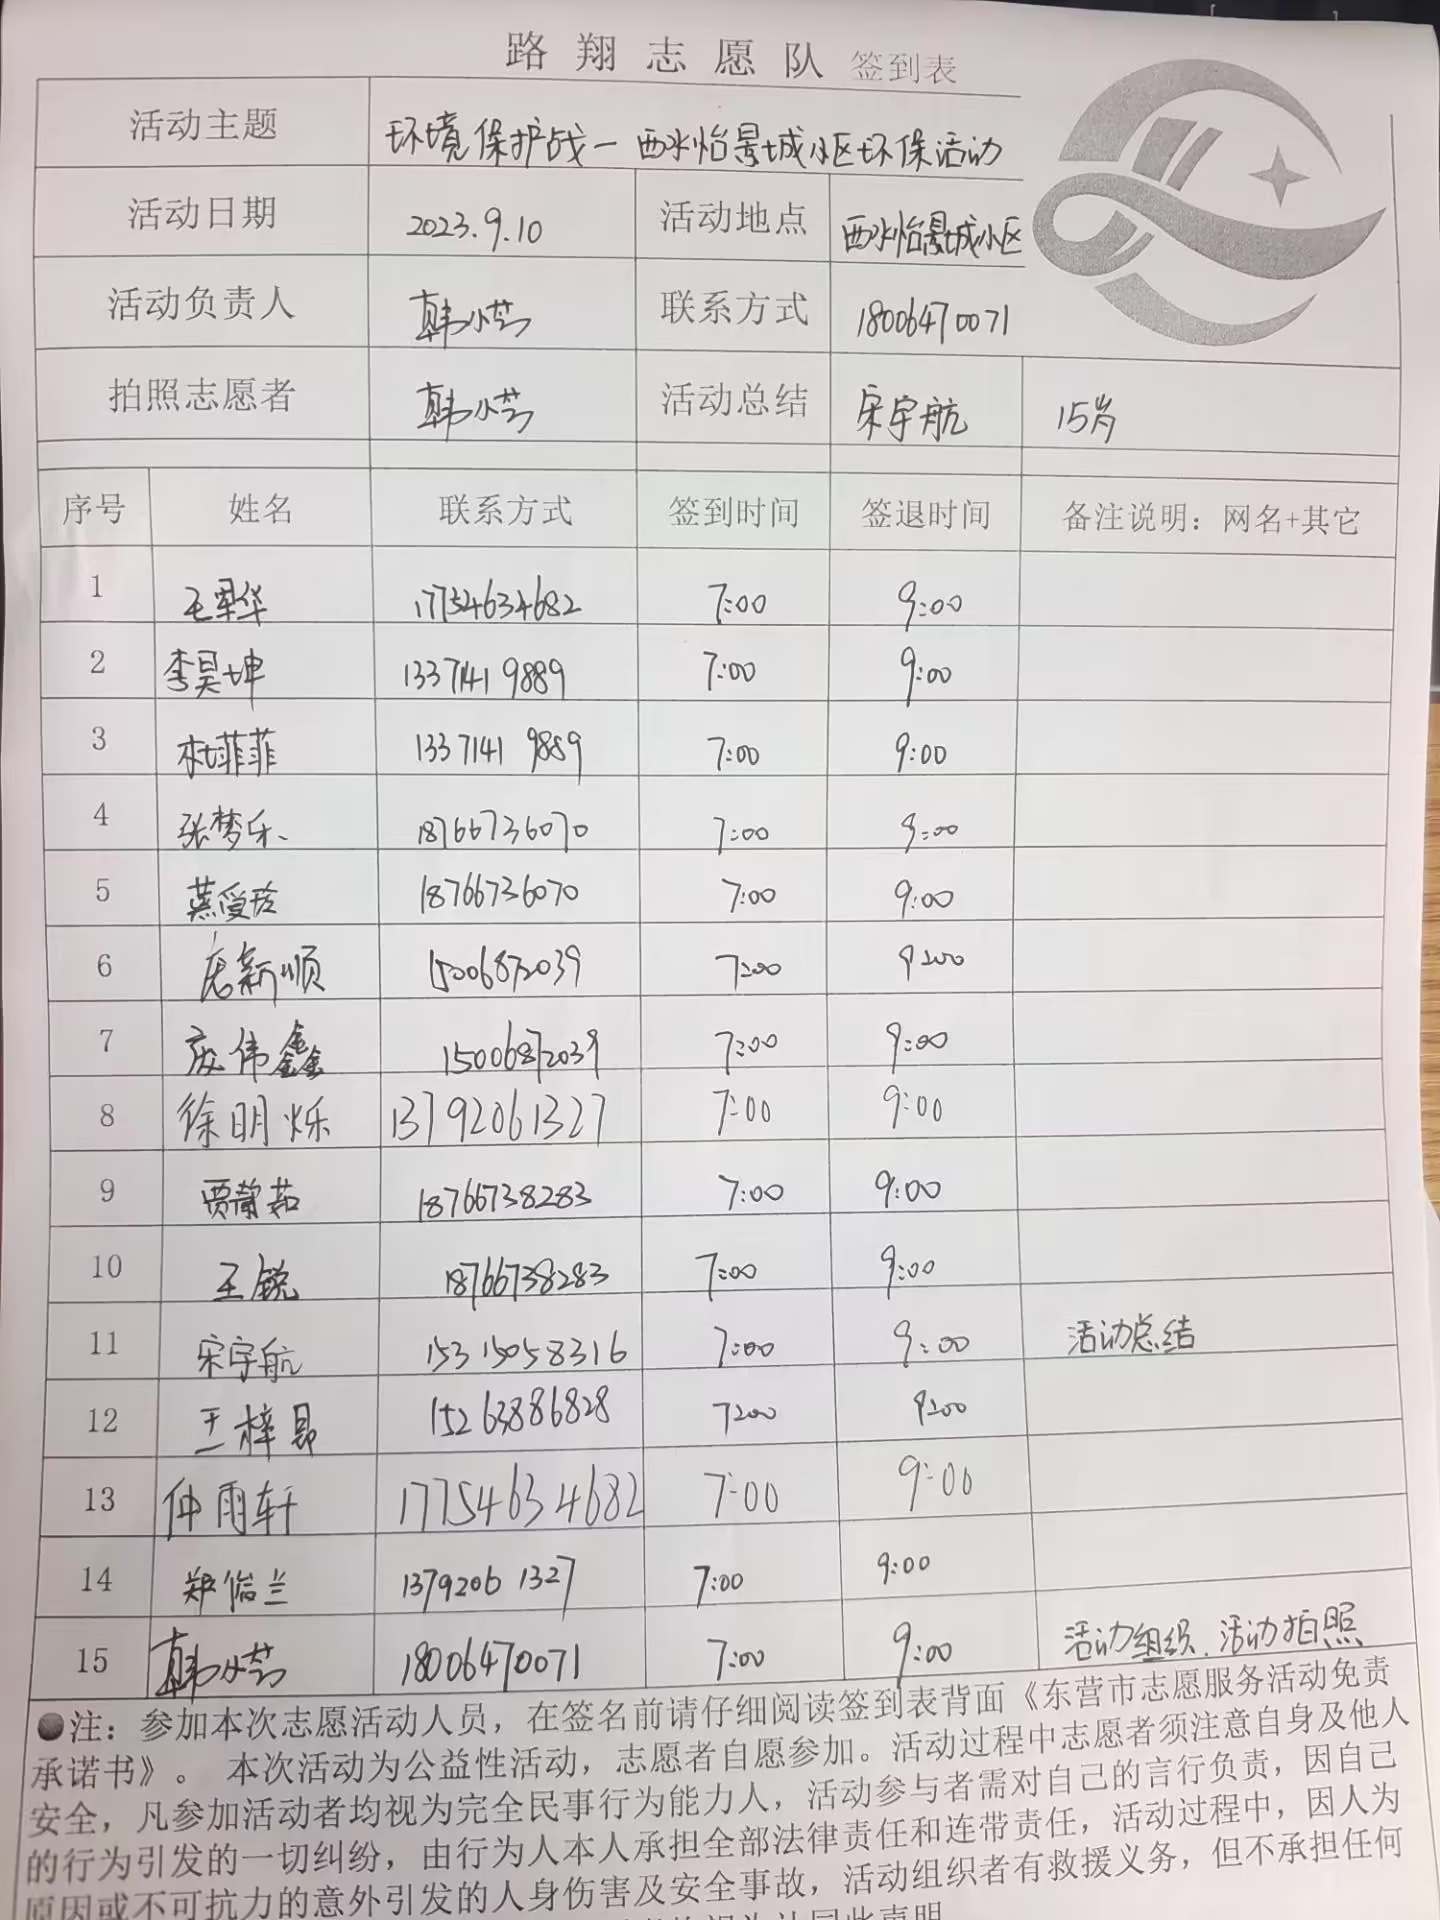 路翔志愿队 签到表
活动主题 环境保护战一西水怡景城小区环保活动
活动日期 2023.9.10 活动地点 西水怡景城小区
活动负责人 韩小芸 联系方式 18006470071
拍照志愿者 韩小芸 活动总结 宋宇航 15岁
序号 姓名 联系方式 签到时间 签退时间 备注说明：网名+其它
1 17754634682 7:00 9:00
2 李昊坤 13371419889 7:00 9:00
3 杜菲菲 13371419889 7:00 9:00
4 张梦乐 18766736070 7:00 9:00
5 燕爱玲 18766736070 7:00 9:00
6 新顺 15006872039 7:00 9:00
7 伟鑫 15006872039 7:00 9:00
8 徐明烁 13792061327 7:00 9:00
9 贾静茹 18766738283 7:00 9:00
10 王锐 18766738283 7:00 9:00
11 宋宇航 15315058316 7:00 9:00 活动总结
12 王梓 15263886828 7:00 9:00
13 仲雨轩 17754634682 7:00 9:00
14 郑俗兰 13792061327 7:00 9:00
15 韩小芸 18006470071 7:00 9:00 活动组织、活动拍照
●注：参加本次志愿活动人员，在签名前请仔细阅读签到表背面《东营市志愿服务活动免责
承诺书》。 本次活动为公益性活动，志愿者自愿参加。活动过程中志愿者须注意自身及他人
安全，凡参加活动者均视为完全民事行为能力人，活动参与者需对自己的言行负责，因自己
的行为引发的一切纠纷，由行为人本人承担全部法律责任和连带责任，活动过程中，因人为
原因或不可抗力的意外引发的人身伤害及安全事故，活动组织者有救援义务，但不承担任何